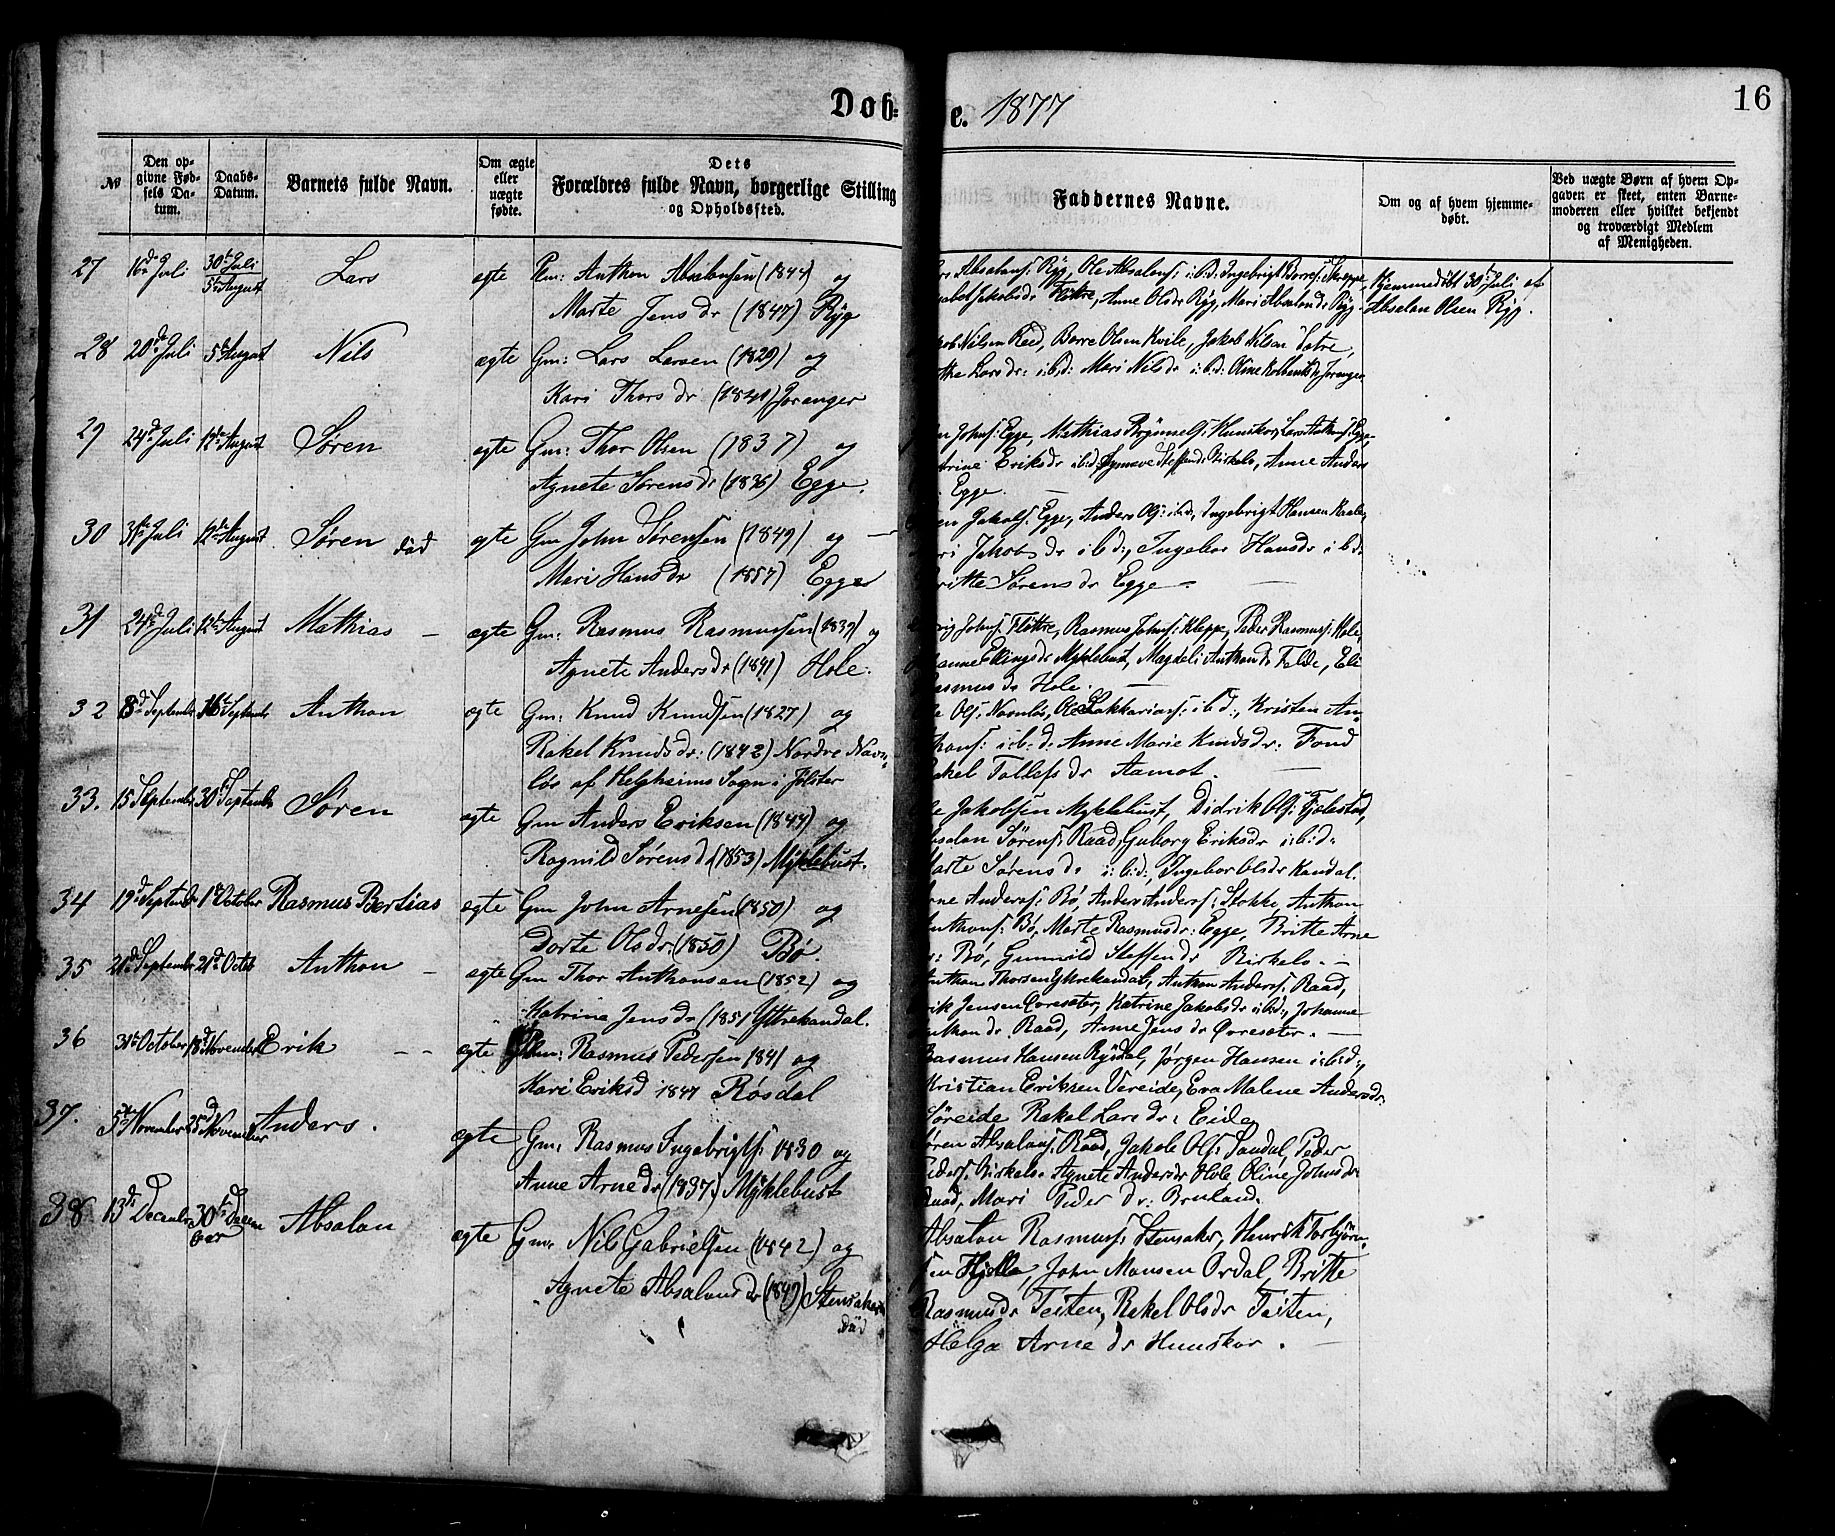 Døb=
e. 1877
16
№
Den op-
givne Fød-
sels Da-
tum.
Daabs-
Datum.
Barnets fulde Navn.
Om ægte
eller
uægte
fødte.
Dets
Forældres fulde Navn, borgerlige Stilling
og Opholdssted.
Faddernes Navne.
Om og af hvem hjemme-
døbt.
Ved uægte Børn af hvem Op-
gaven er skeet, enten Barne-
moderen eller hvilket bekjendt
og troværdigt Medlem
af Menigheden.
27 16de Juli 30te Juli 5te August Lars ægte Anthon Absalonsen (1844) og
Marte Jensdr (1847) Ryg
Absalons: Ryg, Ole Absalons: i:b:d: Ingebrigt Borres: Skreppe,
Jakobsdr Fløtre, Anne Olsdr Ryg, Mari Absalonsdr Ryg.
Hjemmedøbt 30te Juli af
Absalon Olsen Ryg.
28 20de Juli 5te August Nils ægte Gm: Lars Larsen (1829) og
Kari Thorsdr (1841) Joranger
Nilsen Reed, Borre Olsen Kvile, Jakob Nilsen Sætre,
Larsdr: i:b:d: Mari Nilsdr i:b:d: Oline Kolbensdr Joranger
29 24de Juli 12te August Søren ægte Gm: Thor Olsen (1837) og
Agnete Sørensdr (1836) Egge.
Johns: Egge, Mathias Hunskor, Lars Anthons: Egge
Eriksdr i:b:d, Synneve Steffensdr Birkelo, Anne Anders
Egge.
30 31te Juli 12te August Søren død ægte Gm John Sørensen (1849) og
Mari Hansdr (1857) Egge
Jakobs: Egge, Anders Ols: i:b:d, Ingebrigt Hansen
Jakobsdr i:b:d:, Ingebor Hansdr i:b:d:
Britte Sørensdr Egge
31 24de Juli 12te August Mathias ægte Gm: Rasmus Rasmussen (1839) og
Agnete Andersdr (1841) Hole.
Johns: Fløttre, Rasmus Johns: Kleppe, Peder Rasmus: Hole,
Ellingsdr Myklebust, Magdeli Anthonsdr Felde, Eli
Rasmusdr Hole.
32 8de September 16de September Anthon ægte Gm: Knud Knudsen (1827) og
Rakel Knudsdr: (1842) Nordre Navn-
løs af Helgheims Sogn i Jølster
Ols: Navnløs, Ole Sakkarias: i:b:d:, Kristen An-
thons: i:b:d: Anne Marie Knudsdr: Fond
Rakel Tollefsdr Aamot.
33. 15 September 30te September Søren ægte Gm Anders Eriksen (1844) og
Ragnild Sørensd (1853) Myklebust.
Ole Jakobsen Myklebust, Didrik Ols: Fjelestad,
Absalon Sørens: Raad, Guborg Eriksdr i:b:d:
Marte Sørensdr i:b:d:, Ingebor Olsdr Kandal.
34 19de September 1ste October Rasmus Bertias ægte Gm John Arnesen (1850) og
Dorte Olsdr: (1850) Bø.
Arne Anders: Bø, Anders Anders: Stokke, Anthon
Anthons: Bø, Marte Rasmusdr: Egge, Britte Arne
Bø, Gunnild Steffensdr Birkelo.
35 21de September 21de Octob Anthon ægte Gm Thor Anthonsen (1852) og
Katrine Jensdr (1851) Yttrekandal.
Anthon Thorsen Ytrekandal, Anthon Anders: Raad,
Erik Jensen Øvresæter, Katrine Jakobsdr i:b:d:, Johanne
Anthonsdr Raad, Anne Jensdr Øvresæter.
36 31te October 18de November Erik ægte Rasmus Pedersen 1841 og
Kari Eriksd 1847 Røsdal
Rasmus Hansen Rysdal, Jørgen Hansen i:b:d:,
Kristian Eriksen Vereide, Eva Malene Andersdr:
Søreide Rakel Larsdr: Eide
37. 5te November 25de November Anders. ægte Gm: Rasmus Ingebrigts: 1830 og
Anne Arnedr (1837) Myklebust
Søren Absalons: Raad, Jakob Ols: Sandal, Peder
Peders: Birkelo Agnete Andersdr Hole Oline Johnsdr
Raad, Mari Pedersdr: Bruland.
38 13de December 30te Decem
ber Absalon ægte Gm: Nils Gabrielsen (1842) og
Agnete Absalonsdr (1849) Stensaker
død
Absalon Rasmus: Stensaker, Henrik Torbjørn-
sen Hjelle, John Monsen Ordal, Britte
Rasmusdr Teiten, Rakel Olsdr Teiten,
Helga Arnedr Hunskor.